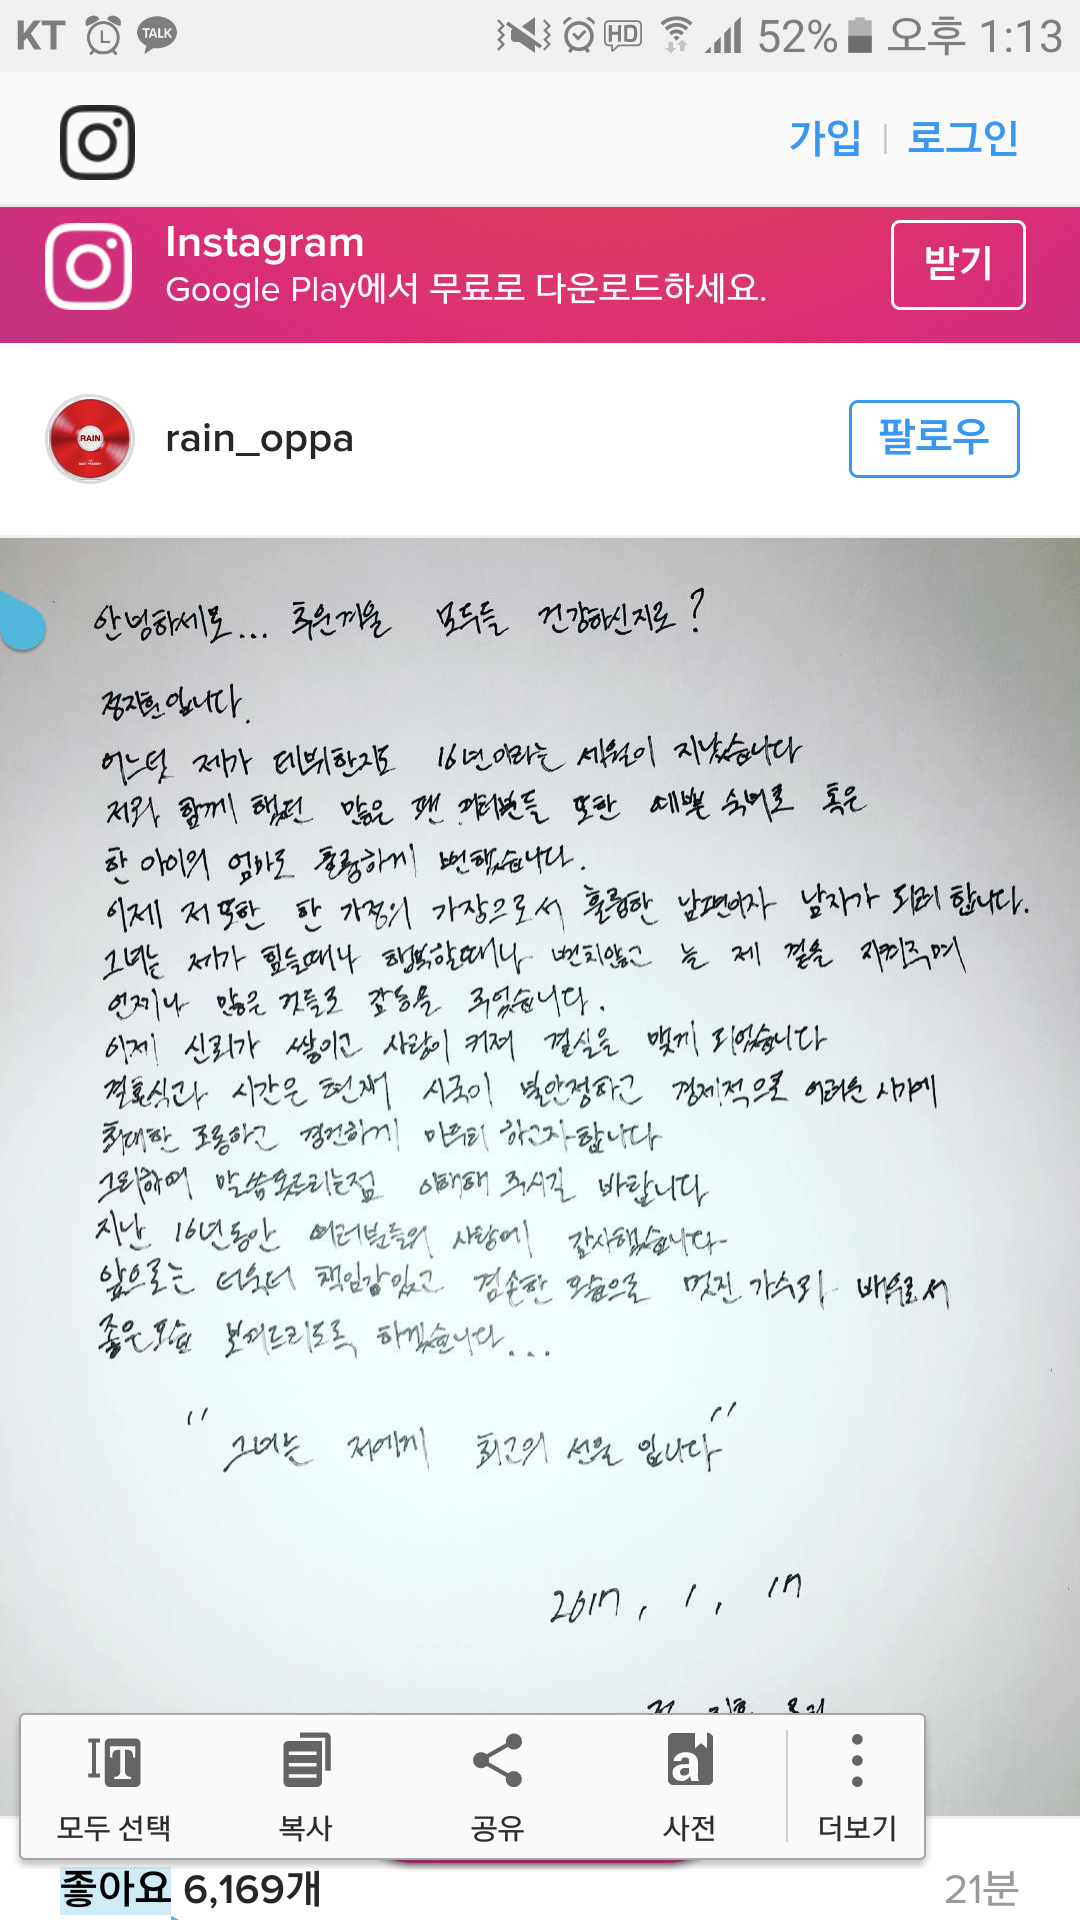 KT TALK HD 52% 오후 1:13
가입 | 로그인
Instagram
Google Play에서 무료로 다운로드하세요.
받기
RAIN
rain_oppa
팔로우
안녕하세요... 추운겨울 모두들 건강하신지요?
정지훈입니다.
어느덧 제가 데뷔한지도 16년이라는 세월이 지났습니다
저와 함께 했던 많은 팬 여러분들 또한 예쁜 숙녀로 혹은
한 아이의 엄마로 훌륭하게 변했습니다.
이제 저 또한 한 가정의 가장으로서 훌륭한 남편이자 남자가 되려 합니다.
그녀는 제가 힘들때나 행복할때나 변치않고 늘 제 곁을 지켜주며
언제나 많은 것들로 감동을 주었습니다.
이제 신뢰가 쌓이고 사랑이 커져 결실을 맺게 되었습니다
결혼식과 시간은 현재 시국이 불안정하고 경제적으로 어려운 시기에
최대한 조용하고 경건하게 마무리 하고자합니다
그리하여 말씀못드리는점 이해해 주시길 바랍니다
지난 16년동안 여러분들의 사랑에 감사했습니다
앞으로는 더욱더 책임감있고 겸손한 모습으로 멋진 가수와 배우로서
좋은모습 보여드리도록 하겠습니다...
"그녀는 저에게 최고의 선물 입니다"
2017, 1, 17
모두 선택
복사
공유
a
사전
더보기
좋아요 6,169개
21분